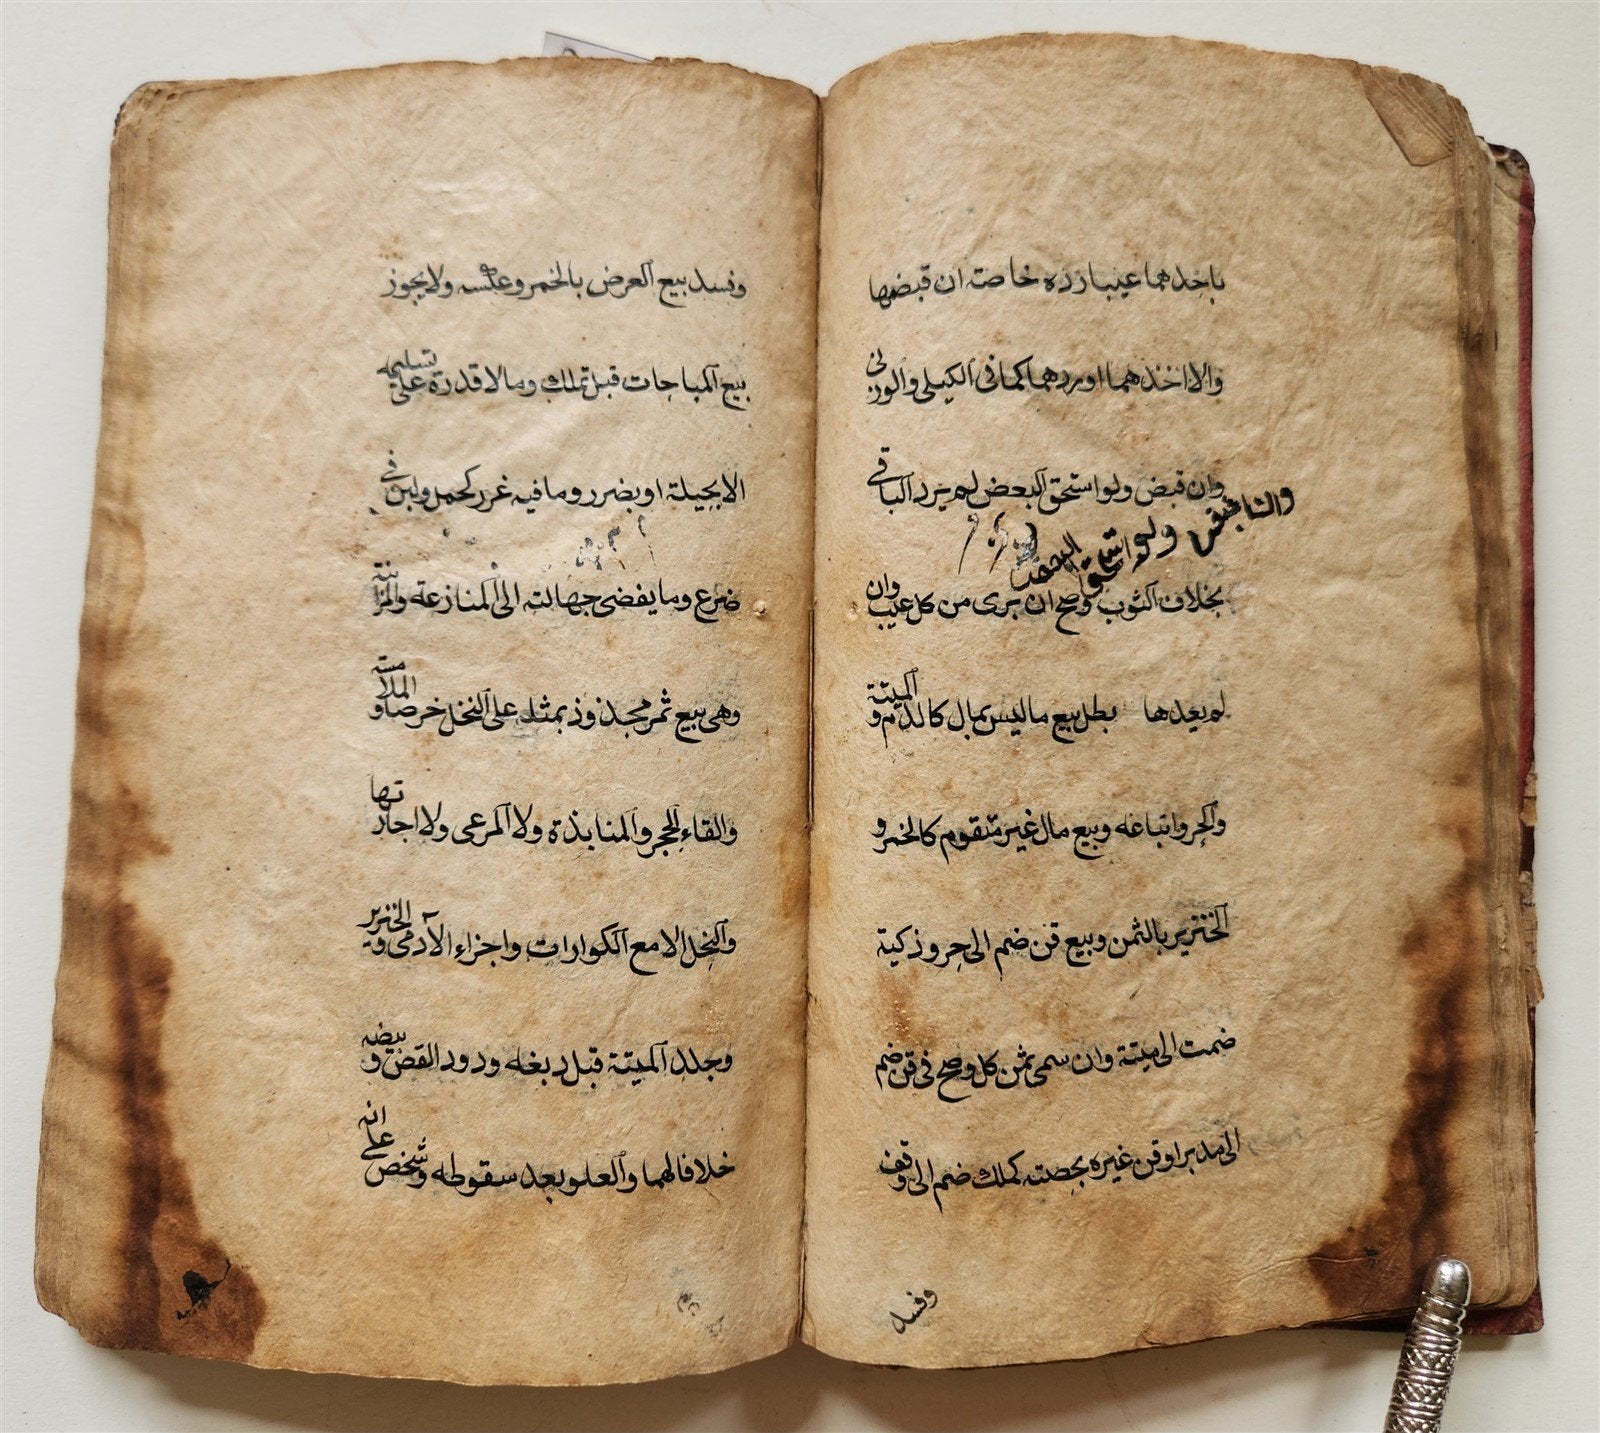 باحدهما عيبا رده خاصة ان قبضهما
والا اخذهما او ردهما كما في الكيلي والوزني
وان قبض ولو استحق البعض لم يرد الباقي
ولو استحق البعض
بخلاف الثوب وصح ان برى من كل عيب وان
لم يعدها بطل بيع ما ليس بمال كالدم والميتة
والحر واتباعه وبيع مال غير متقوم كالخمر و
الخنزير بالثمن وبيع قن ضم الى حر وزكية
ضمت الى ميتة وان سمى ثمن كل وصح في قن ضم
الى مدبر او قن غيره بحصته كملك ضم الى وقف
وفسد
وفسد بيع العرض بالخمر وعكسه ولا يجوز
بيع المباحات قبل تملك وما لا قدرة على تسليمه
الا بحيلة او بضرر وما فيه غرر كحمل ولبن في
ضرع وما يفضى جهالته الى المنازعة والمزابنة
وهي بيع ثمر مجذوذ بمثله على النخل خرصا والملامسة
والقاء الحجر والمنابذة ولا المرعى ولا اجارتها
والنحل الا مع الكوارات واجزاء الآدمي والخنزير
وجلد الميتة قبل دبغه ودود القز وبيضه
خلافا لهما والعلو بعد سقوطه وشخص على انه